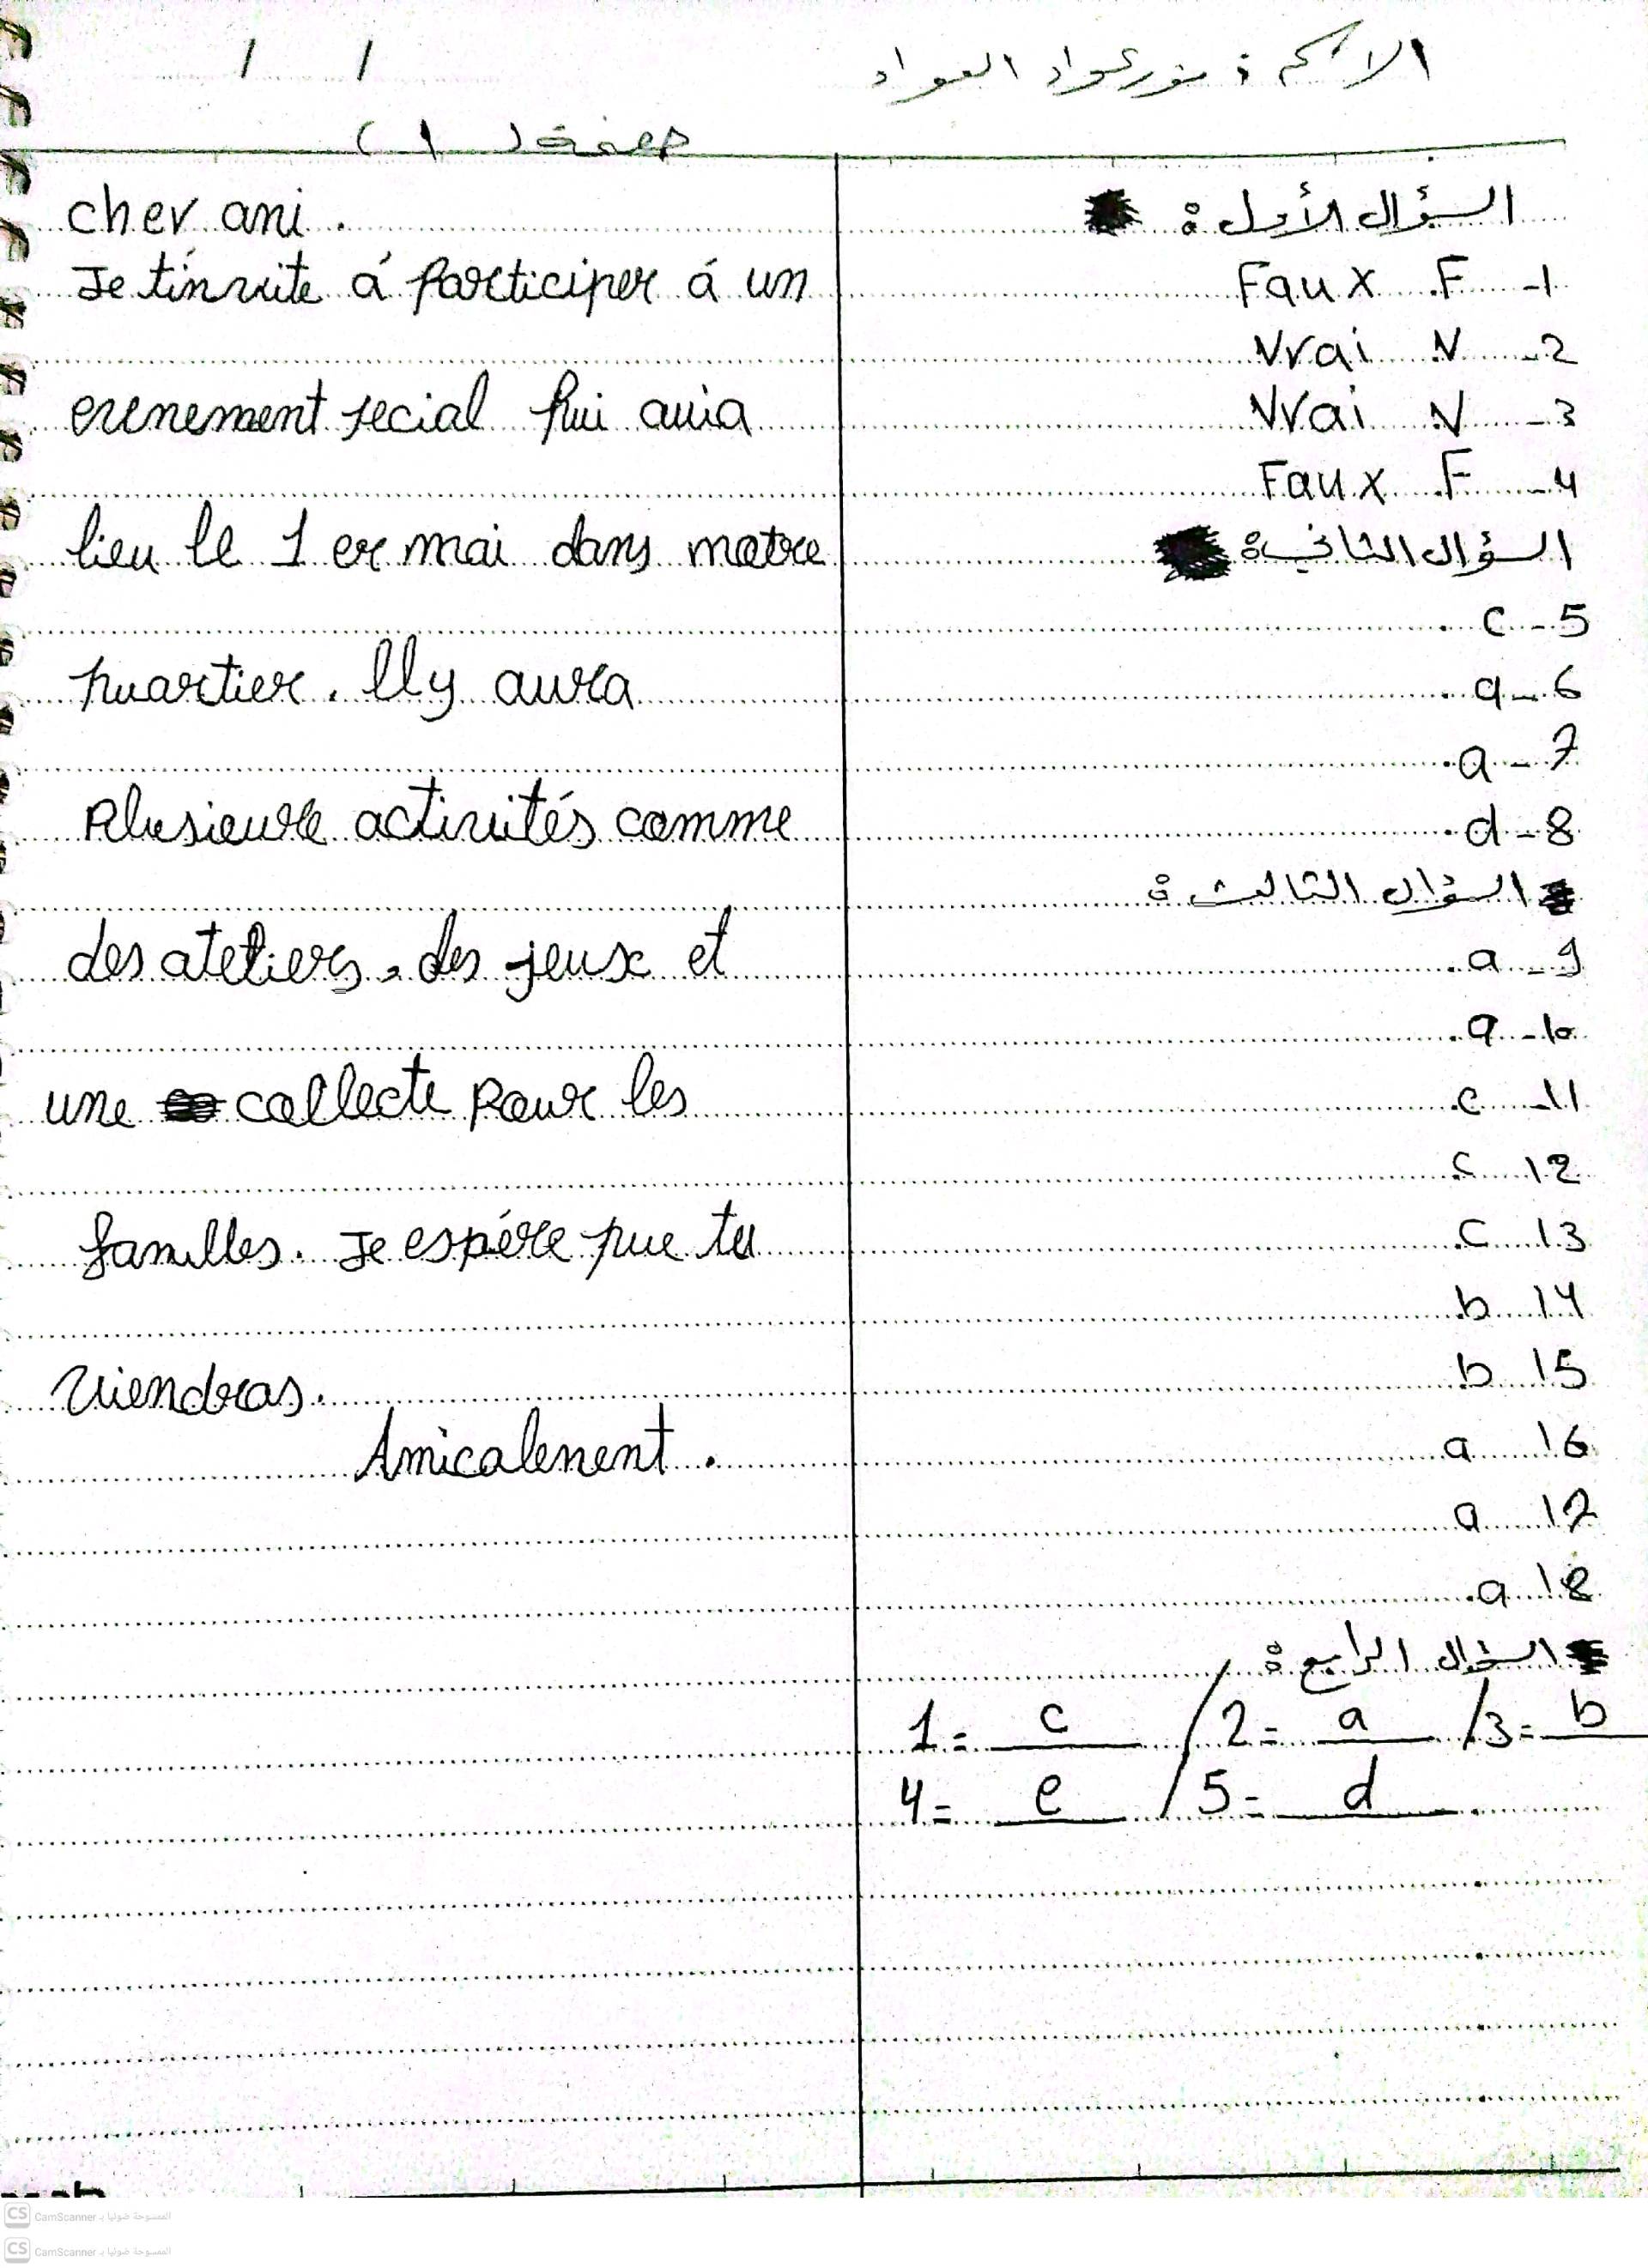 الاسم : نور عواد العواد
/ /
صفحة ( ١ )
السؤال الأول :
1- F Faux
2- V Vrai
3- V Vrai
4- F Faux
السؤال الثاني :
5- c.
6- a.
7- a.
8- d.
السؤال الثالث :
9- a.
10- a.
11- c.
12 c.
13 c.
14 b.
15 b.
16 a
17 a
18 a.
السؤال الرابع :
1 = c / 2 = a / 3 = b
4 = e / 5 = d.
cher ani.
Je t'invite á participer á un
evenement pecial qui aura
lieu le 1 er mai dans notre
quartier. Il y aura
Plusieure activités comme
des ateliers, des jeux et
une collecte pour les
familles. Je espére que tu
viendras.
Amicalement.
CS CamScanner الممسوحة ضوئيا بـ
CS CamScanner الممسوحة ضوئيا بـ